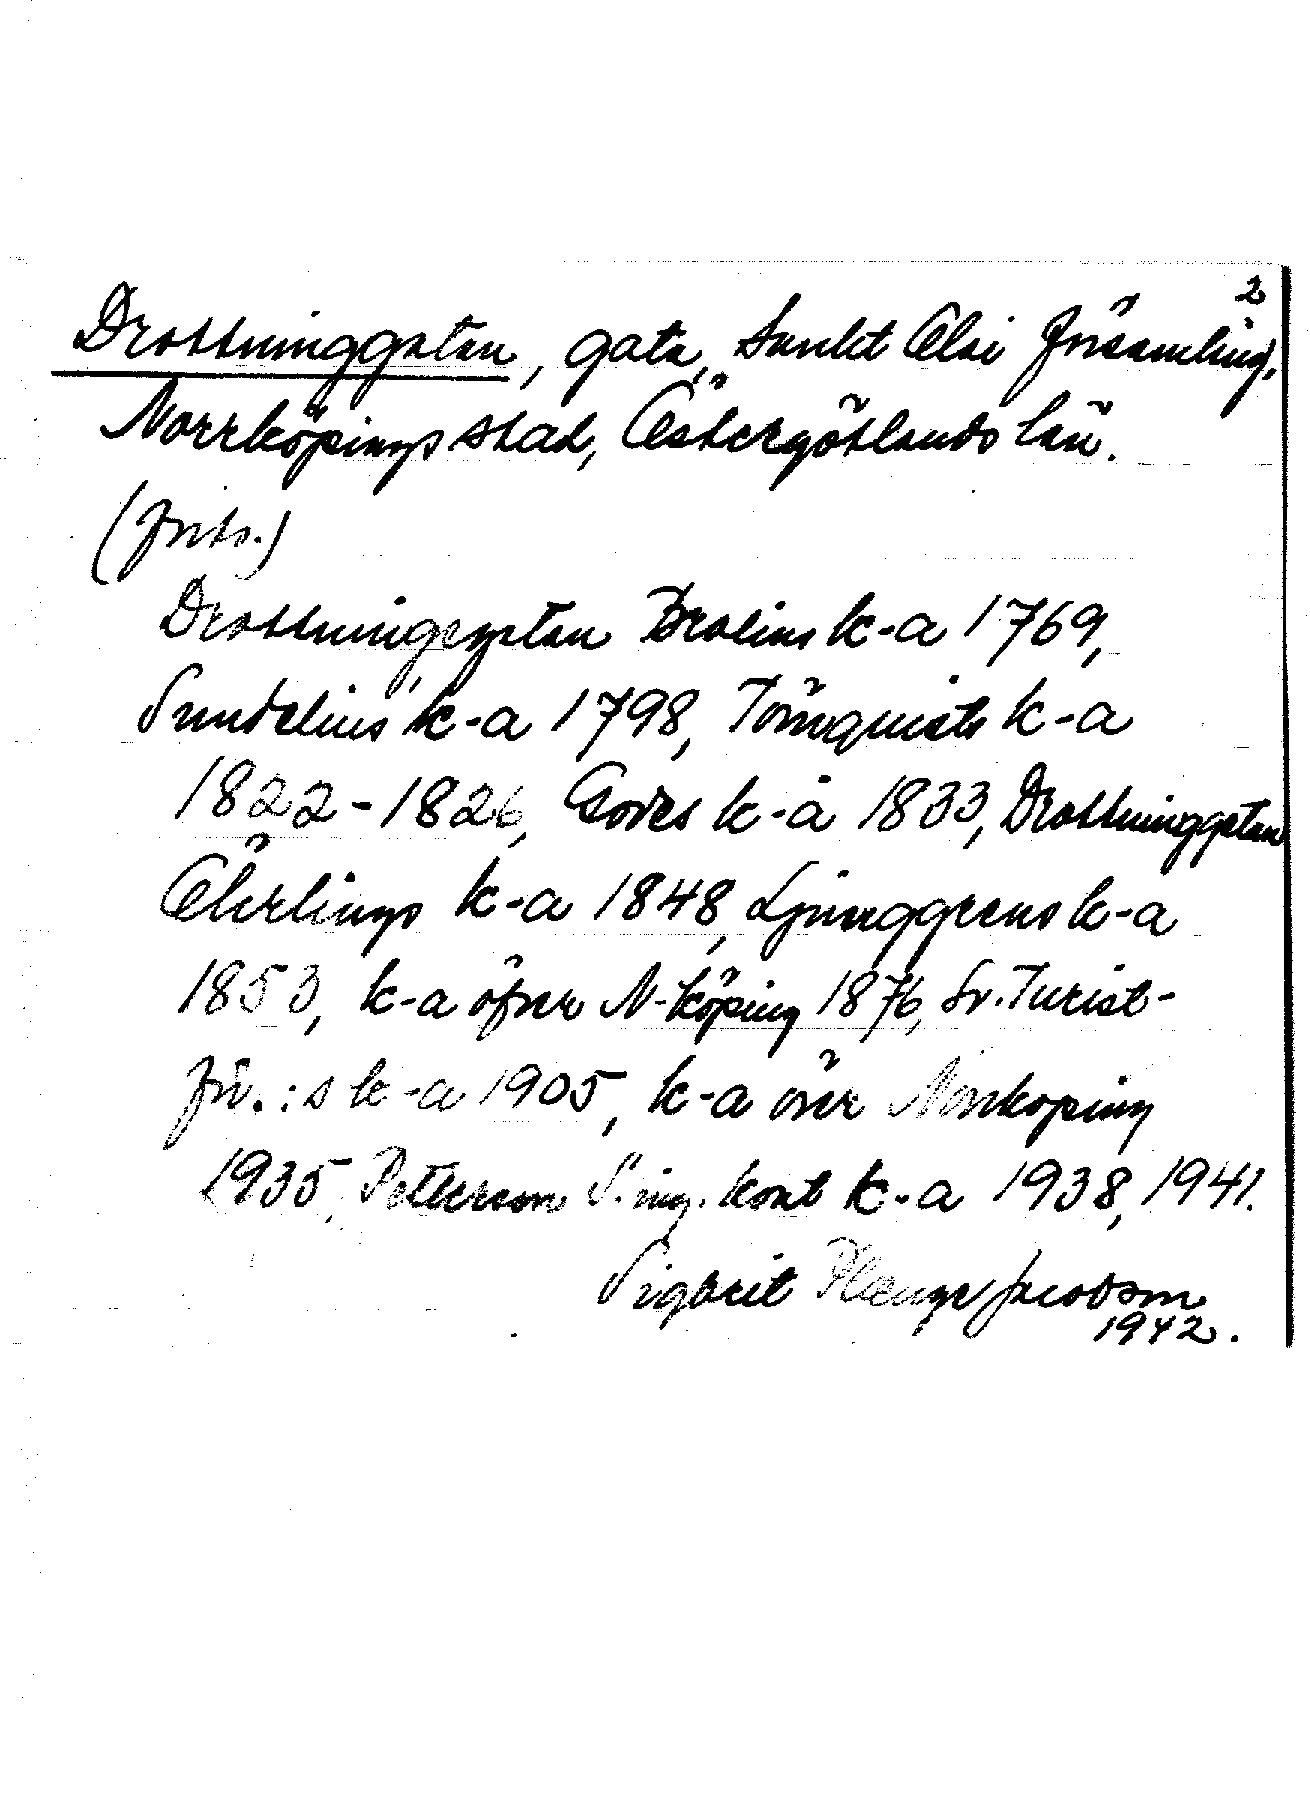 2
Drottninggatan, gata, Sankt Olai församling,
Norrköpings stad, Östergötlands län.
(forts.)
Drottningegatan Brolins k-a 1769,
Sundelius k-a 1798, Törnquists k-a
1822-1826, Gordes k-a 1833, Drottninggatan
Öhrlings k-a 1848, Ljunggrens k-a
1853, k-a öfver N-köping 1876, Sv. Turist-
för.:s k-a 1905, k-a över Norrköping
1935, Petterson S. ing. kont k-a 1938, 1941.
Sigbrit Plænge Jacobson
1942.